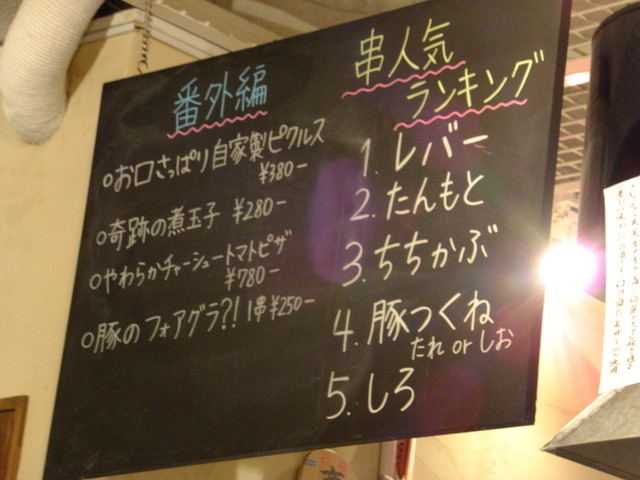 番外編
○お口さっぱり自家製ピクルス
¥380-
○奇跡の煮玉子 ¥280-
○やわらかチャーシュートマトピザ
¥780-
○豚のフォアグラ?! 1串¥250-
串人気
ランキング
1. レバー
2. たんもと
3. ちちかぶ
4. 豚つくね
たれ or しお
5. しろ